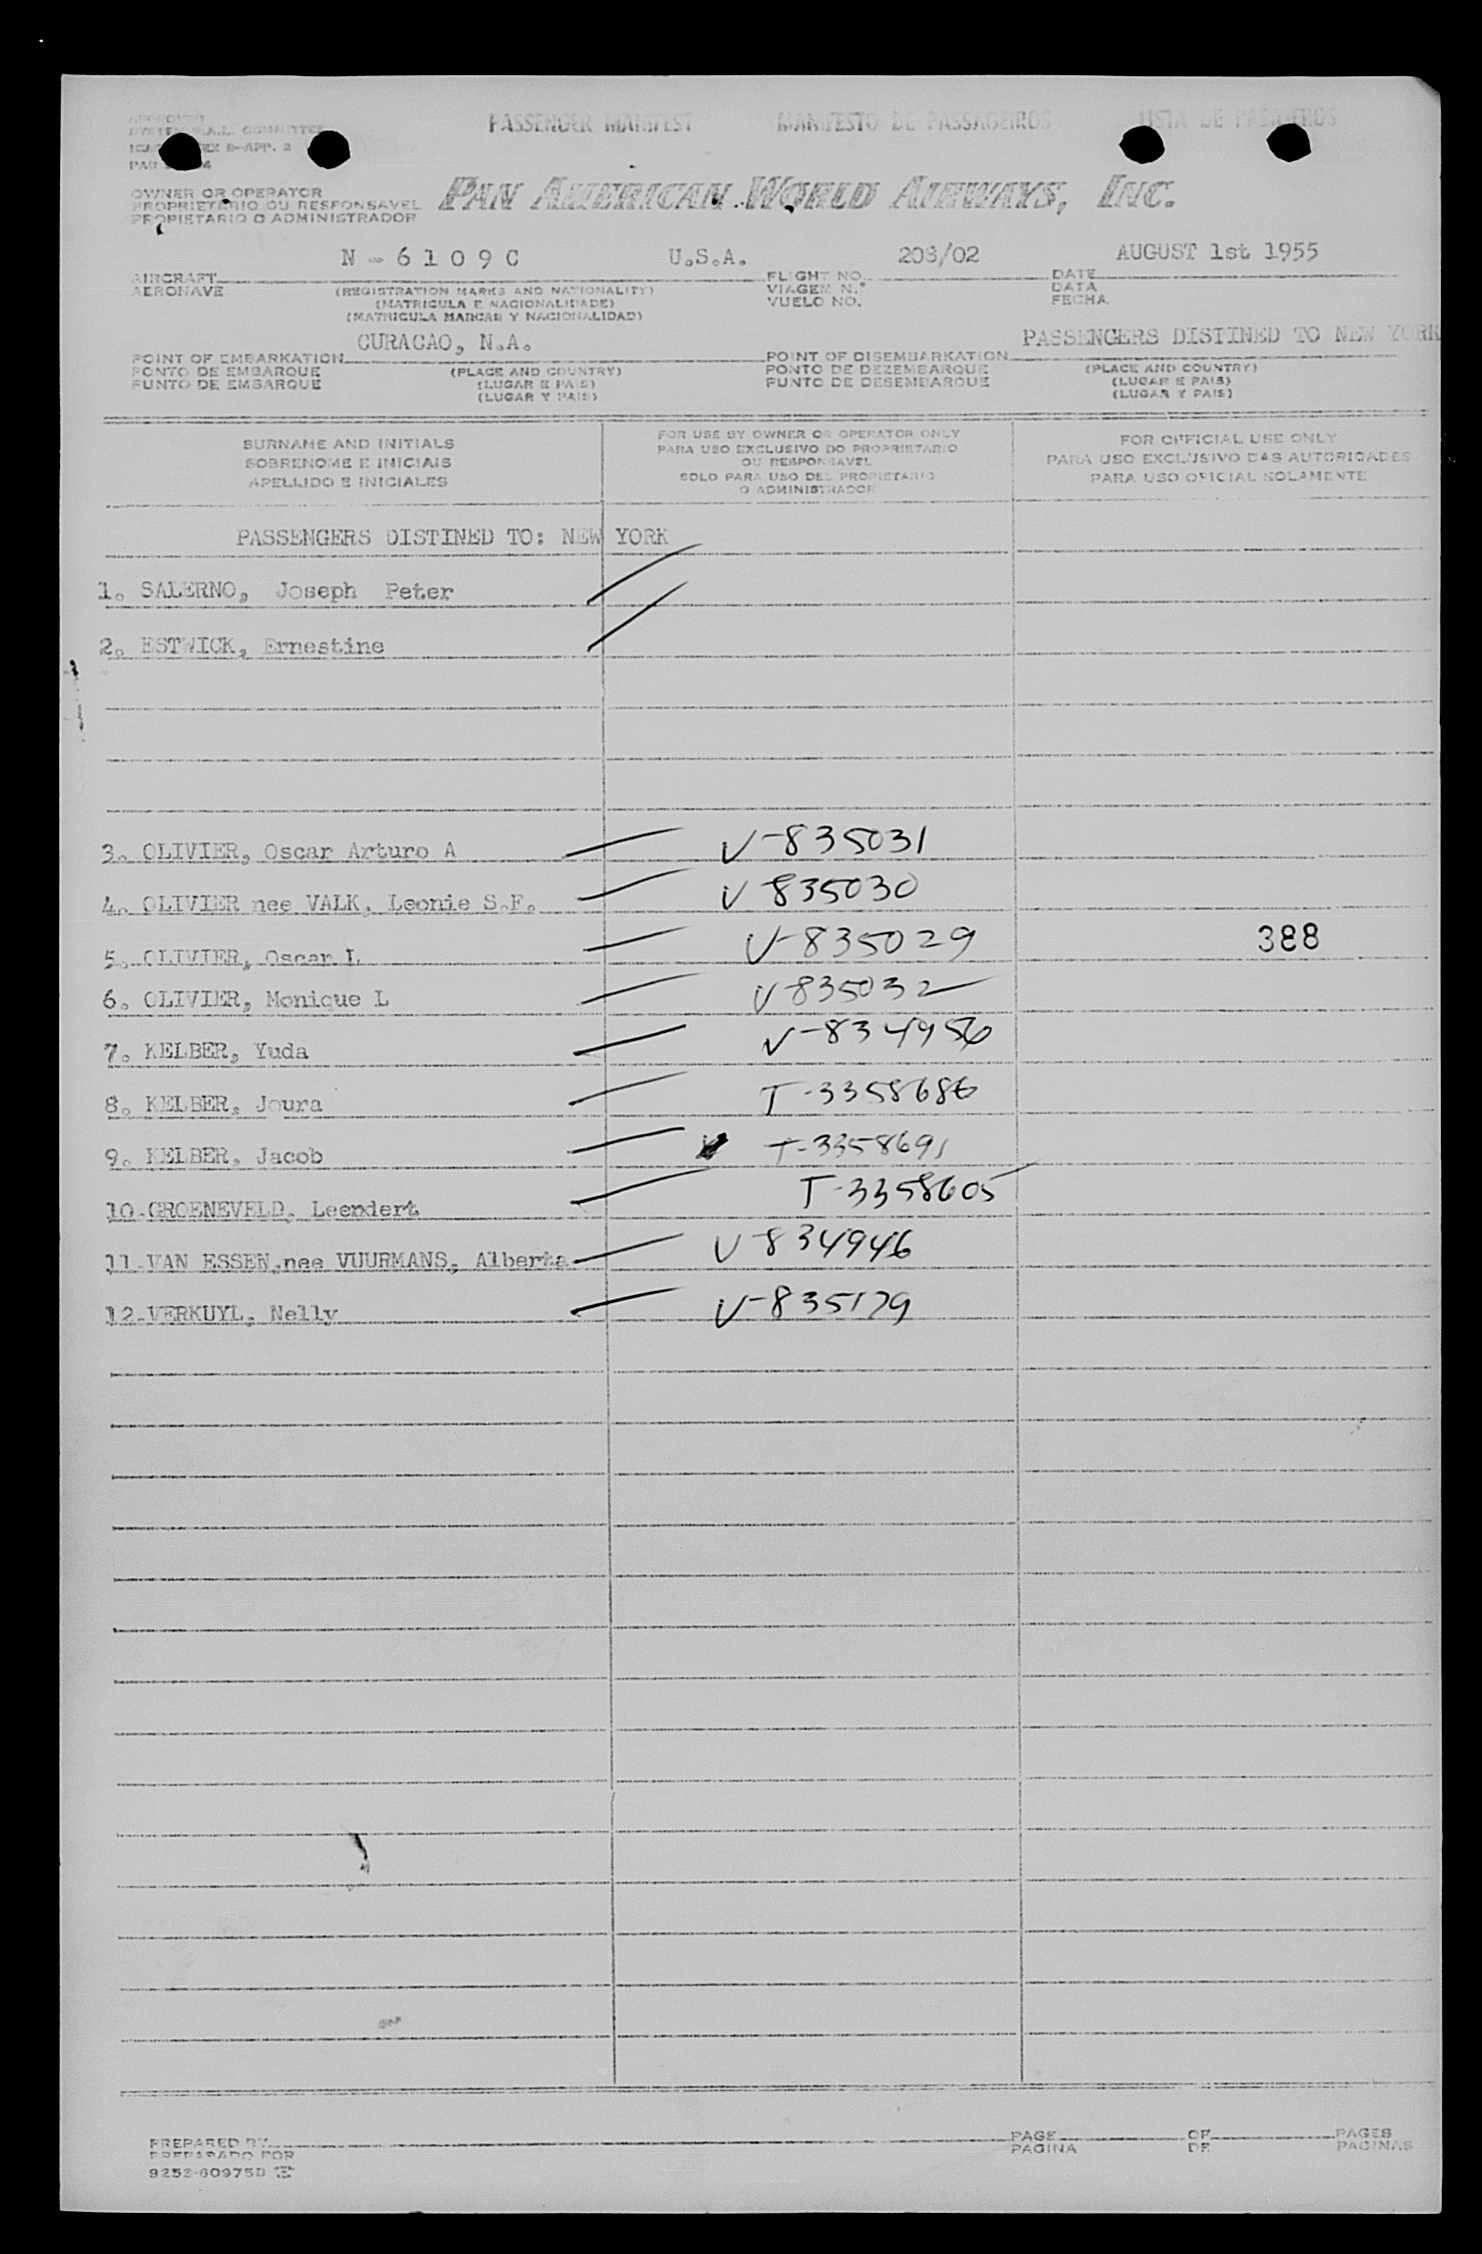 PASSENGER MANIFEST MANIFESTO DE PASSAGEIROS LISTA DE PASAJEROS
OWNER OR OPERATOR
PROPRIETARIO OU RESPONSAVEL
PROPIETARIO O ADMINISTRADOR
PAN AMERICAN WORLD AIRWAYS, INC.
N-6109C U.S.A. 208/02 AUGUST 1st 1955
AIRCRAFT FLIGHT NO. DATE
AERONAVE (REGISTRATION MARKS AND NATIONALITY) VIAGEM N.º DATA
(MATRICULA E NACIONALIDADE) VUELO NO. FECHA
(MATRICULA MARCAS Y NACIONALIDAD)
CURACAO, N.A. PASSENGERS DISTINED TO NEW YORK
POINT OF EMBARKATION POINT OF DISEMBARKATION
PONTO DE EMBARQUE (PLACE AND COUNTRY) PONTO DE DEZEMBARQUE (PLACE AND COUNTRY)
PUNTO DE EMBARQUE (LUGAR E PAIS) PUNTO DE DESEMBARQUE (LUGAR E PAIS)
(LUGAR Y PAIS) (LUGAR Y PAIS)
SURNAME AND INITIALS
SOBRENOME E INICIAIS
APELLIDO E INICIALES
FOR USE BY OWNER OR OPERATOR ONLY
PARA USO EXCLUSIVO DO PROPRIETARIO
OU RESPONSAVEL
SOLO PARA USO DEL PROPIETARIO
O ADMINISTRADOR
FOR OFFICIAL USE ONLY
PARA USO EXCLUSIVO DAS AUTORIDADES
PARA USO OFICIAL SOLAMENTE
PASSENGERS DISTINED TO: NEW YORK
1. SALERNO, Joseph Peter
2. ESTWICK, Ernestine
3. OLIVIER, Oscar Arturo A V-835031
4. OLIVIER nee VALK, Leonie S.F. V 835030
5. OLIVIER, Oscar L V-835029 388
6. OLIVIER, Monique L V-835032
7. KELBER, Yuda V-834956
8. KELBER, Joura T-3358686
9. KELBER, Jacob T-3358691
10.GROENEVELD, Leendert T-3358605
11.VAN ESSEN,nee VUURMANS, Alberta V-834946
12.VERKUYL, Nelly V-835179
PREPARED BY PAGE OF PAGES
PREPARADO POR PAGINA DE PAGINAS
9252-60975B